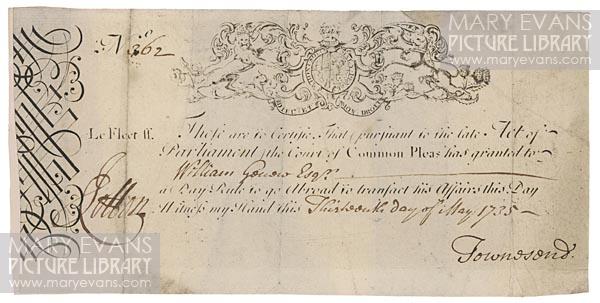 MARY EVANS
PICTURE LIBRARY
www.maryevans.com
No. 362
DIEU ET MON DROIT
Le Fleet ss. These are to Certifie, That (pursuant to the late Act of
Parliament) the Court of Common Pleas has granted to
William Esqr.
a Day Rule to go Abroad to transact his Affairs this Day
Witness my Hand this Thirteenth day of May 1735
Townesend.
MARY EVANS
PICTURE LIBRARY
www.maryevans.com
MARY EVANS
PICTURE LIBRARY
www.maryevans.com